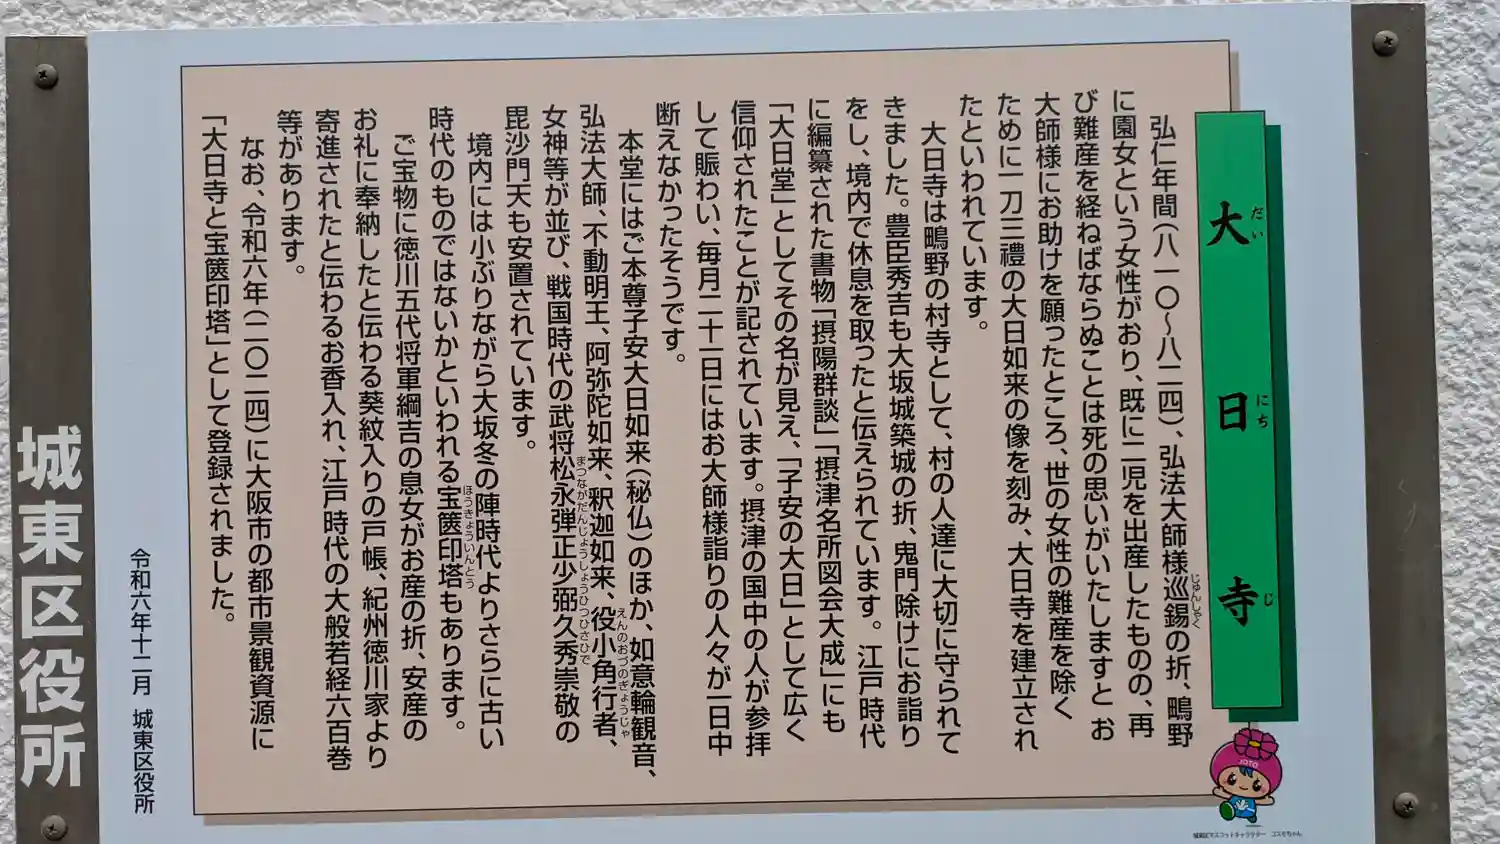 大日寺
だいにちじ
弘仁年間(八一〇～八二四)、弘法大師様巡錫の折、鴫野
じゅんしゃく
に園女という女性がおり、既に二児を出産したものの、再
び難産を経ねばならぬことは死の思いがいたしますと お
大師様にお助けを願ったところ、世の女性の難産を除く
ために一刀三禮の大日如来の像を刻み、大日寺を建立され
たといわれています。
大日寺は鴫野の村寺として、村の人達に大切に守られて
きました。豊臣秀吉も大坂城築城の折、鬼門除けにお詣り
をし、境内で休息を取ったと伝えられています。江戸時代
に編纂された書物「摂陽群談」「摂津名所図会大成」にも
「大日堂」としてその名が見え、「子安の大日」として広く
信仰されたことが記されています。摂津の国中の人が参拝
して賑わい、毎月二十一日にはお大師様詣りの人々が一日中
断えなかったそうです。
本堂にはご本尊子安大日如来(秘仏)のほか、如意輪観音、
弘法大師、不動明王、阿弥陀如来、釈迦如来、役小角行者、
えんのおづのぎょうじゃ
女神等が並び、戦国時代の武将松永弾正少弼久秀崇敬の
まつながだんじょうしょうひつひさひで
毘沙門天も安置されています。
境内には小ぶりながら大坂冬の陣時代よりさらに古い
時代のものではないかといわれる宝篋印塔もあります。
ほうきょういんとう
ご宝物に徳川五代将軍綱吉の息女がお産の折、安産の
お礼に奉納したと伝わる葵紋入りの戸帳、紀州徳川家より
寄進されたと伝わるお香入れ、江戸時代の大般若経六百巻
等があります。
なお、令和六年(二〇二四)に大阪市の都市景観資源に
「大日寺と宝篋印塔」として登録されました。
令和六年十二月 城東区役所
城東区役所
JOTO
城東区マスコットキャラクター コスモちゃん